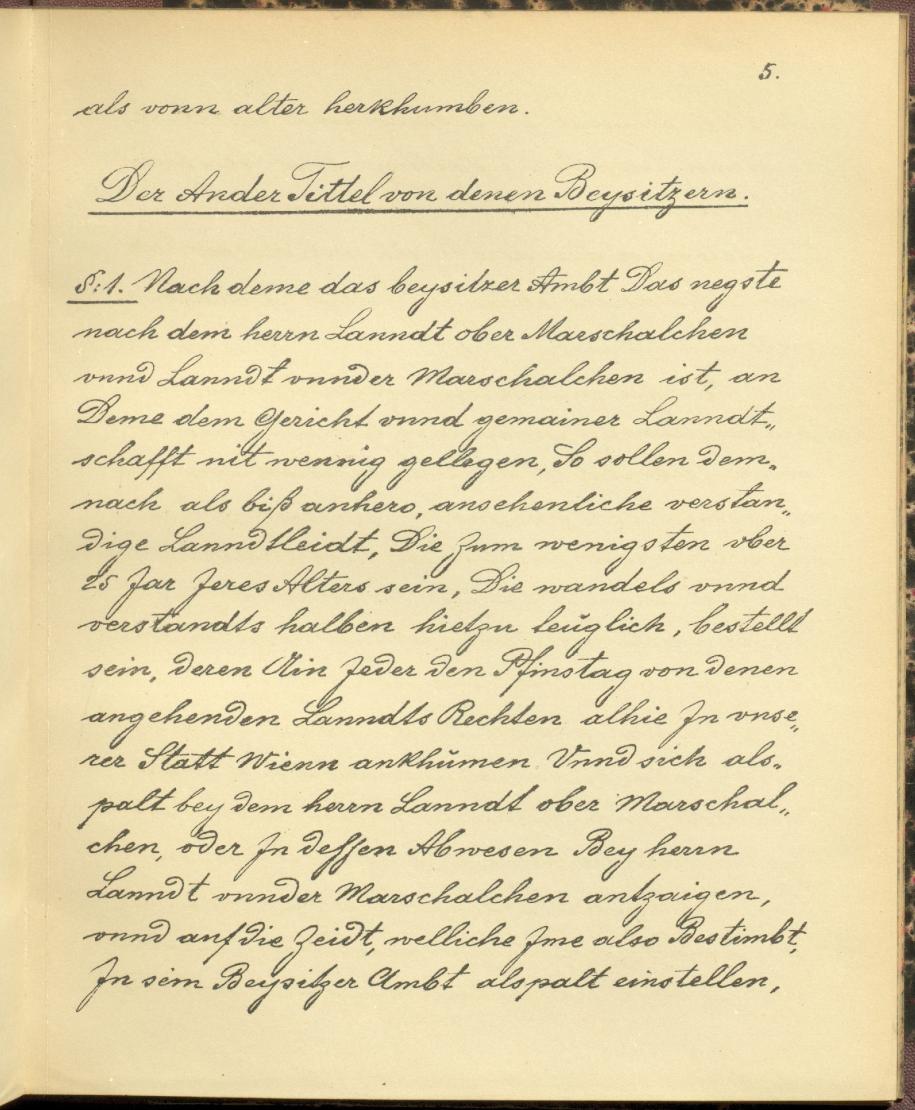 5.
als vonn alter herkhumben.
Der Ander Tittel von denen Beysitzern.
§:1. Nach deme das beysitzer Ambt Das negste
nach dem herrn Lanndt ober Marschalchen
vnnd Lanndt vnnder Marschalchen ist, an
Deme dem Gericht vnnd gemainer Lanndt„
schafft nit wennig gellegen, So sollen dem„
nach als biß anhero, ansehenliche verstan„
dige Lanndtleidt, Die zum wenigsten vber
25 Jar Jeres Alters sein, Die wandels vnnd
verstandts halben hietzu teŭglich, bestellt
sein, deren Ain Jeder den Pfinstag von denen
angehenden Lanndts Rechten alhie Jn vnse„
rer Statt Wienn ankhŭmen Vnnd sich als„
palt bey dem herrn Lanndt ober Marschal„
chen, oder Jn dessen Abwesen Bey herrn
Lanndt vnnder Marschalchen antzaigen,
vnnd auf die Zeidt, welliche Jme also Bestimbt,
Jn sein Beysitzer Ambt alspalt einstellen,